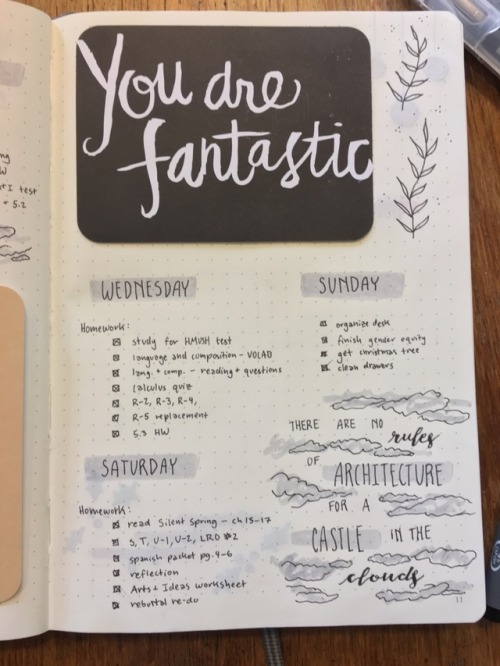 You are
fantastic
WEDNESDAY
Homework:
study for HMVSH test
language and composition - VOCAB
lang. + comp. - reading + questions
calculus quiz
R-2, R-3, R-4,
R-5 replacement
5.3 HW
SATURDAY
Homework:
read Silent Spring - ch 15-17
S, T, U-1, U-2, LRO #2
spanish packet pg. 4-6
reflection
Arts + Ideas worksheet
rebuttal re-do
SUNDAY
organize desk
finish gender equity
get christmas tree
clean drawers
THERE ARE NO
rules
OF
ARCHITECTURE
FOR A
CASTLE IN THE
clouds
11
test
5.2